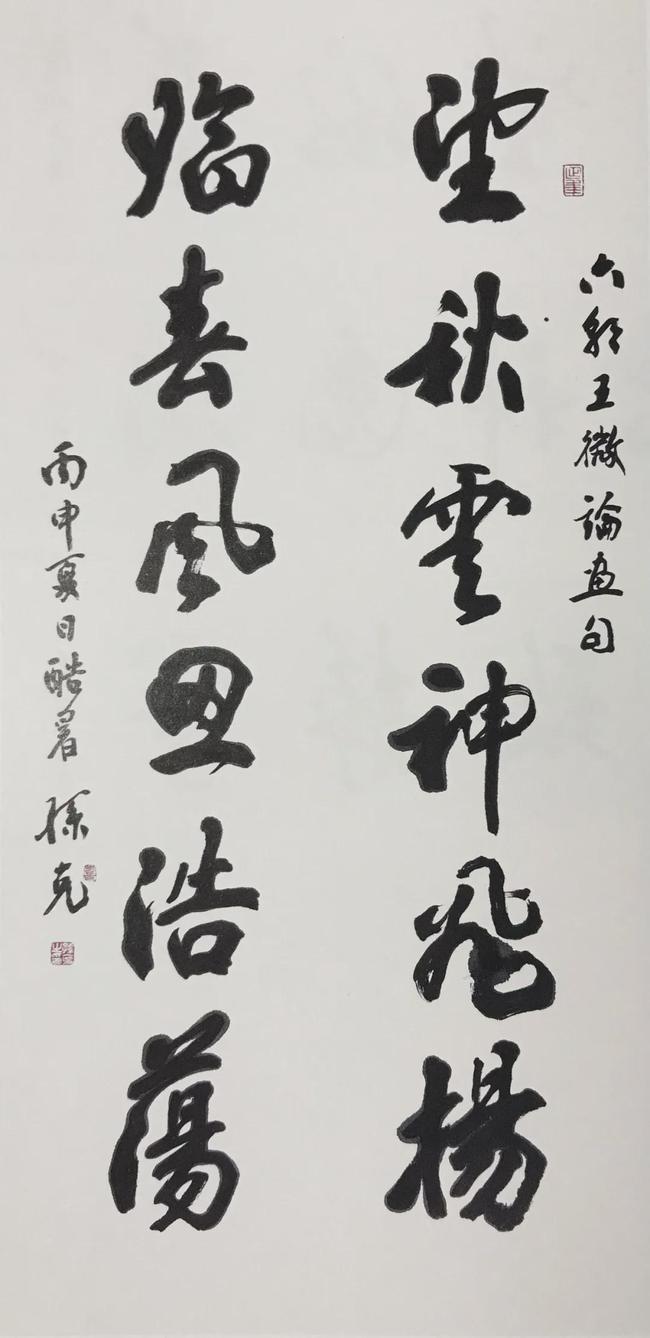 六朝王微論画句
望秋雲神飛揚
臨春風思浩蕩
丙申夏日酷暑
孫克